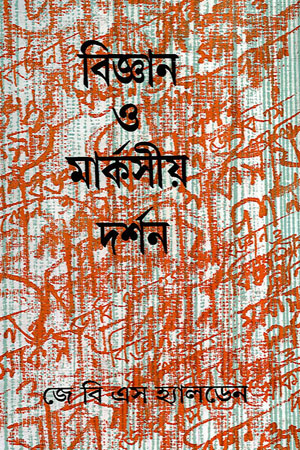 বিজ্ঞান
ও
মার্কসীয়
দর্শন
জে বি এস হ্যালডেন